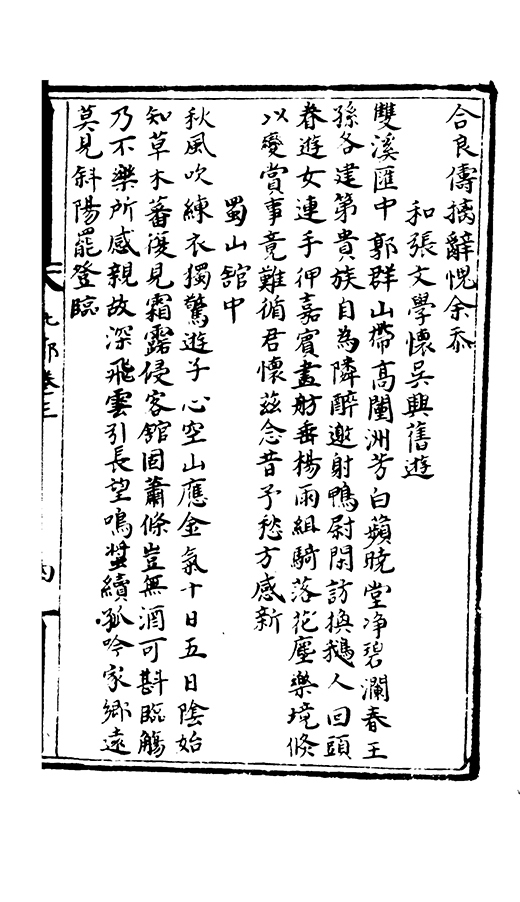 合良儔摛辭愧余忝
和張文學懷吳興舊遊
雙溪匯中郭群山帶高闉洲芳白蘋曉堂净碧瀾春王
孫各建第貴族自為隣醉邀射鴨尉閑訪換鵝人回頭
看遊女連手押嘉賓畫舫垂楊雨組騎落花塵樂境倏
以變賞事竟難循君懷兹念昔予愁方感新
蜀山舘中
秋風吹練衣獨驚遊子心空山應金氣十日五日陰始
知草木蕃復見霜露侵客舘固蕭條豈無酒可斟臨觴
乃不樂所感親故深飛雲引長望鳴蛩續孤吟家鄉遠
莫見斜陽罷登臨
卷三